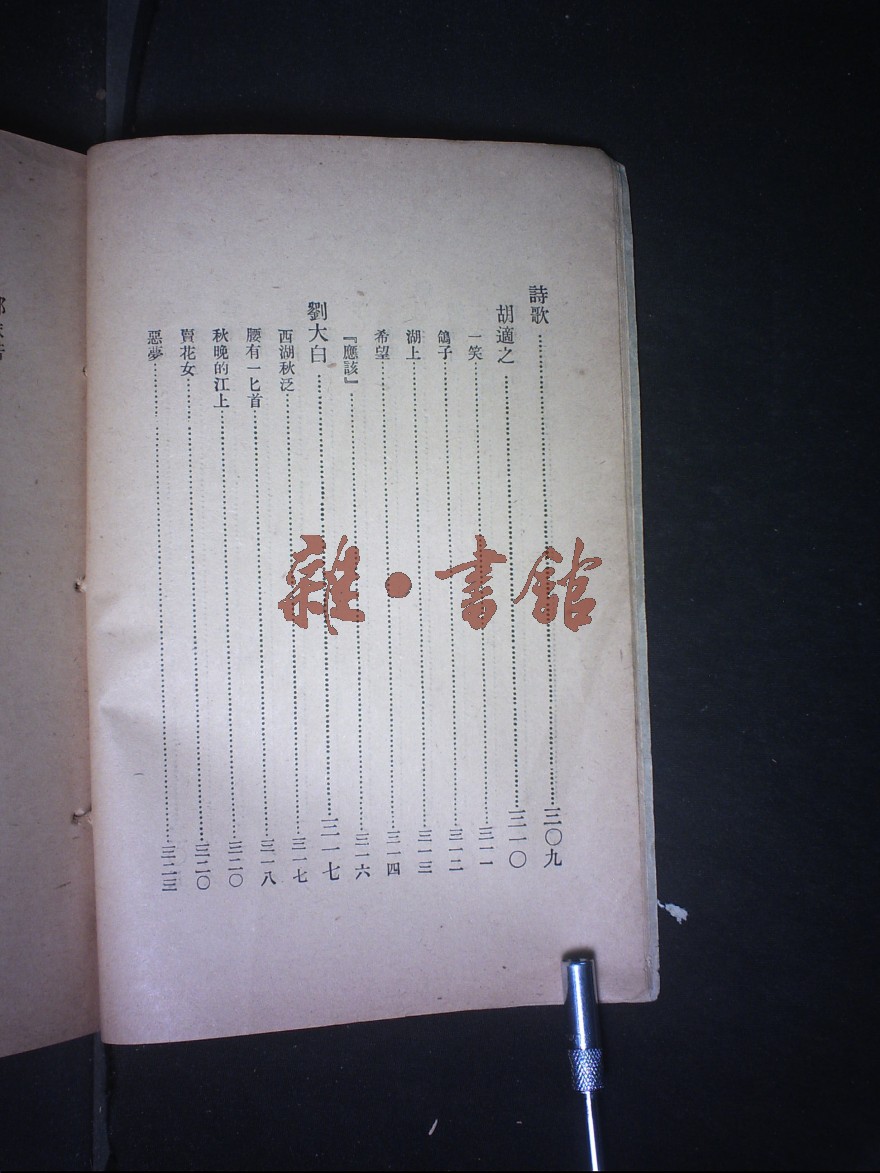 詩歌……三〇九
胡適之……三一〇
一笑……三一一
鴿子……三一二
湖上……三一三
希望……三一四
『應該』……三一六
劉大白……三一七
西湖秋泛……三一七
腰有一匕首……三一八
秋晚的江上……三二〇
賣花女……三二〇
惡夢……三二三
雜·書館